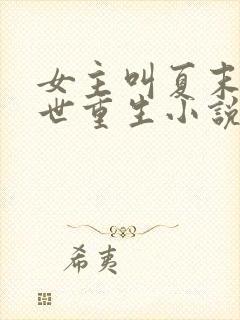 女主叫夏末
世重生小说
希夷